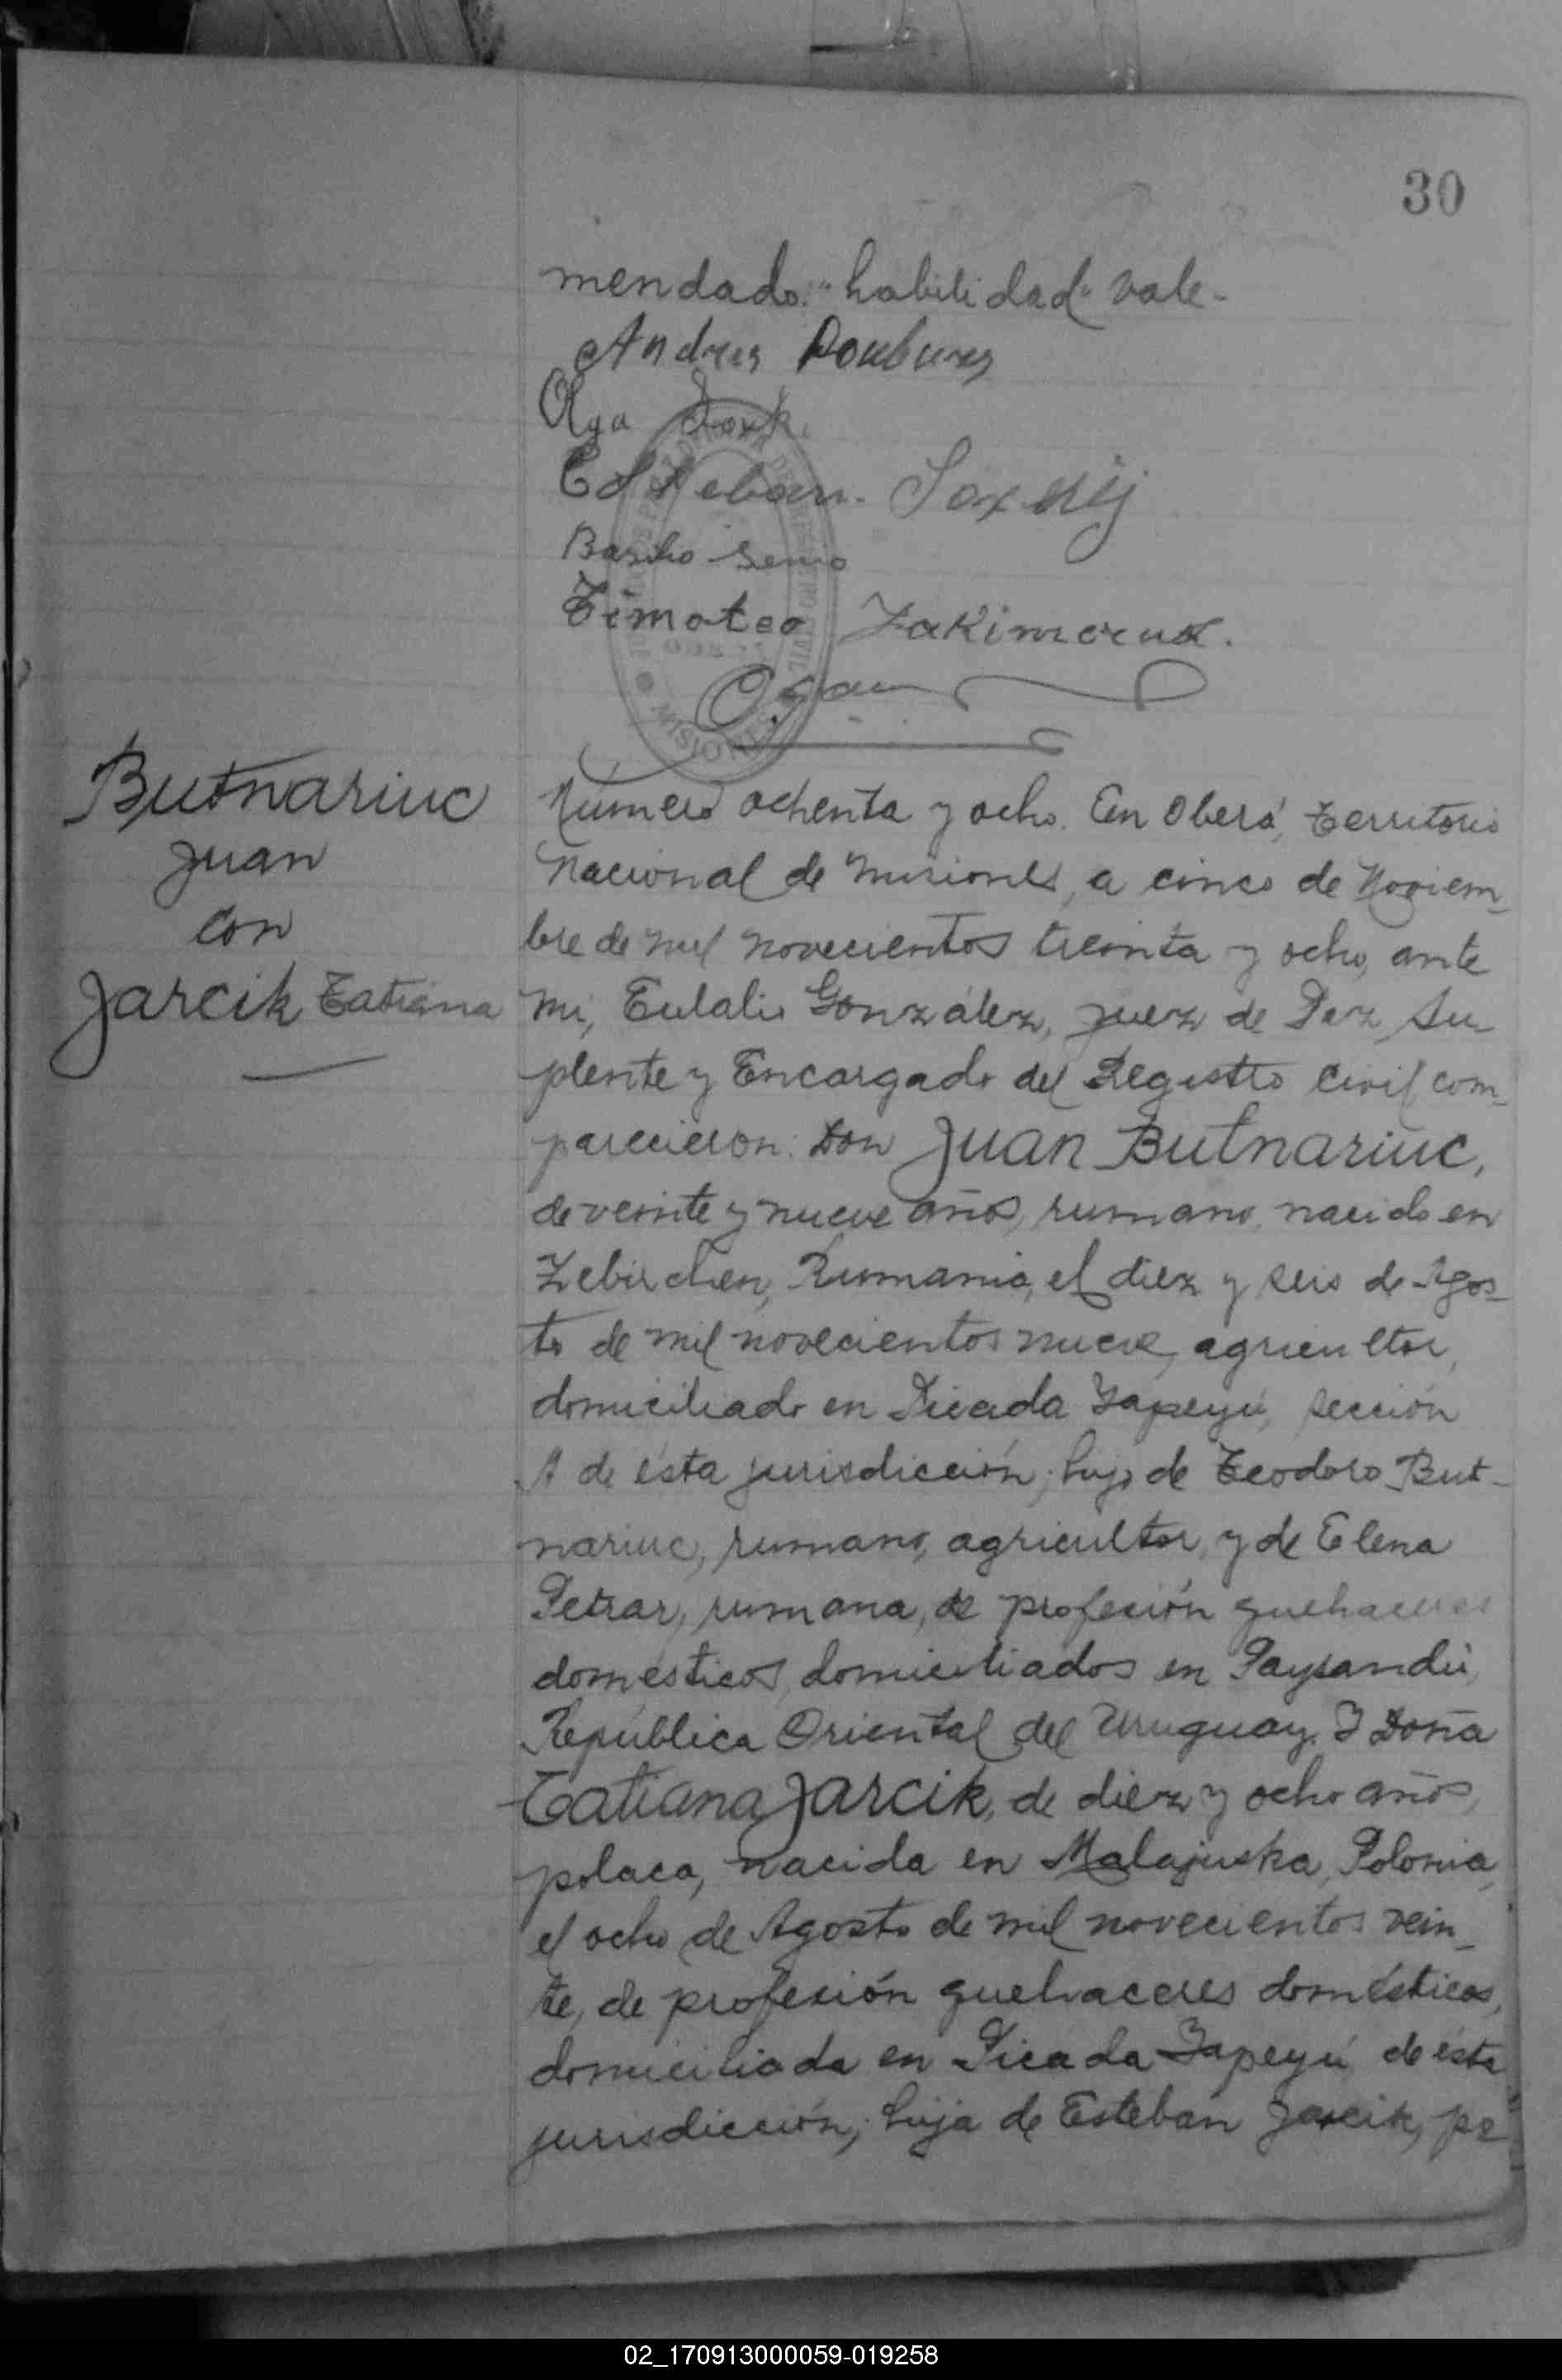 30
mendado: "habilidad" vale-
Andres
Olga
Esteban
Basilio
Timoteo
MISIONES
Butnariuc
Juan
con
Jarcik Tatiana
Número ochenta y ocho. En Oberá, Territorio
Nacional de Misiones, a cinco de Noviem_
bre de mil novecientos treinta y ocho, ante
mi, Eulalio González, Juez de Paz Su_
plente y Encargado del Registro Civil com_
parecieron: Don Juan Butnariuc,
de veinte y nueve años, rumano, nacido en
Zebirchen, Rumania, el diez y seis de Agos_
to de mil novecientos nueve, agricultor,
domiciliado en Picada Yapeyú, sección
A de ésta jurisdicción; hijo de Teodoro But_
nariuc, rumano, agricultor, y de Elena
Petrar, rumana, de profesión quehaceres
domésticos, domiciliados en Paysandú,
República Oriental del Uruguay. Y Doña
Tatiana Jarcik, de diez y ocho años,
polaca, nacida en Malajuska, Polonia,
el ocho de Agosto de mil novecientos vein_
te, de profesión quehaceres domésticos,
domiciliada en Picada Yapeyú de ésta
jurisdicción; hija de Esteban Jarcik, po
02_170913000059-019258